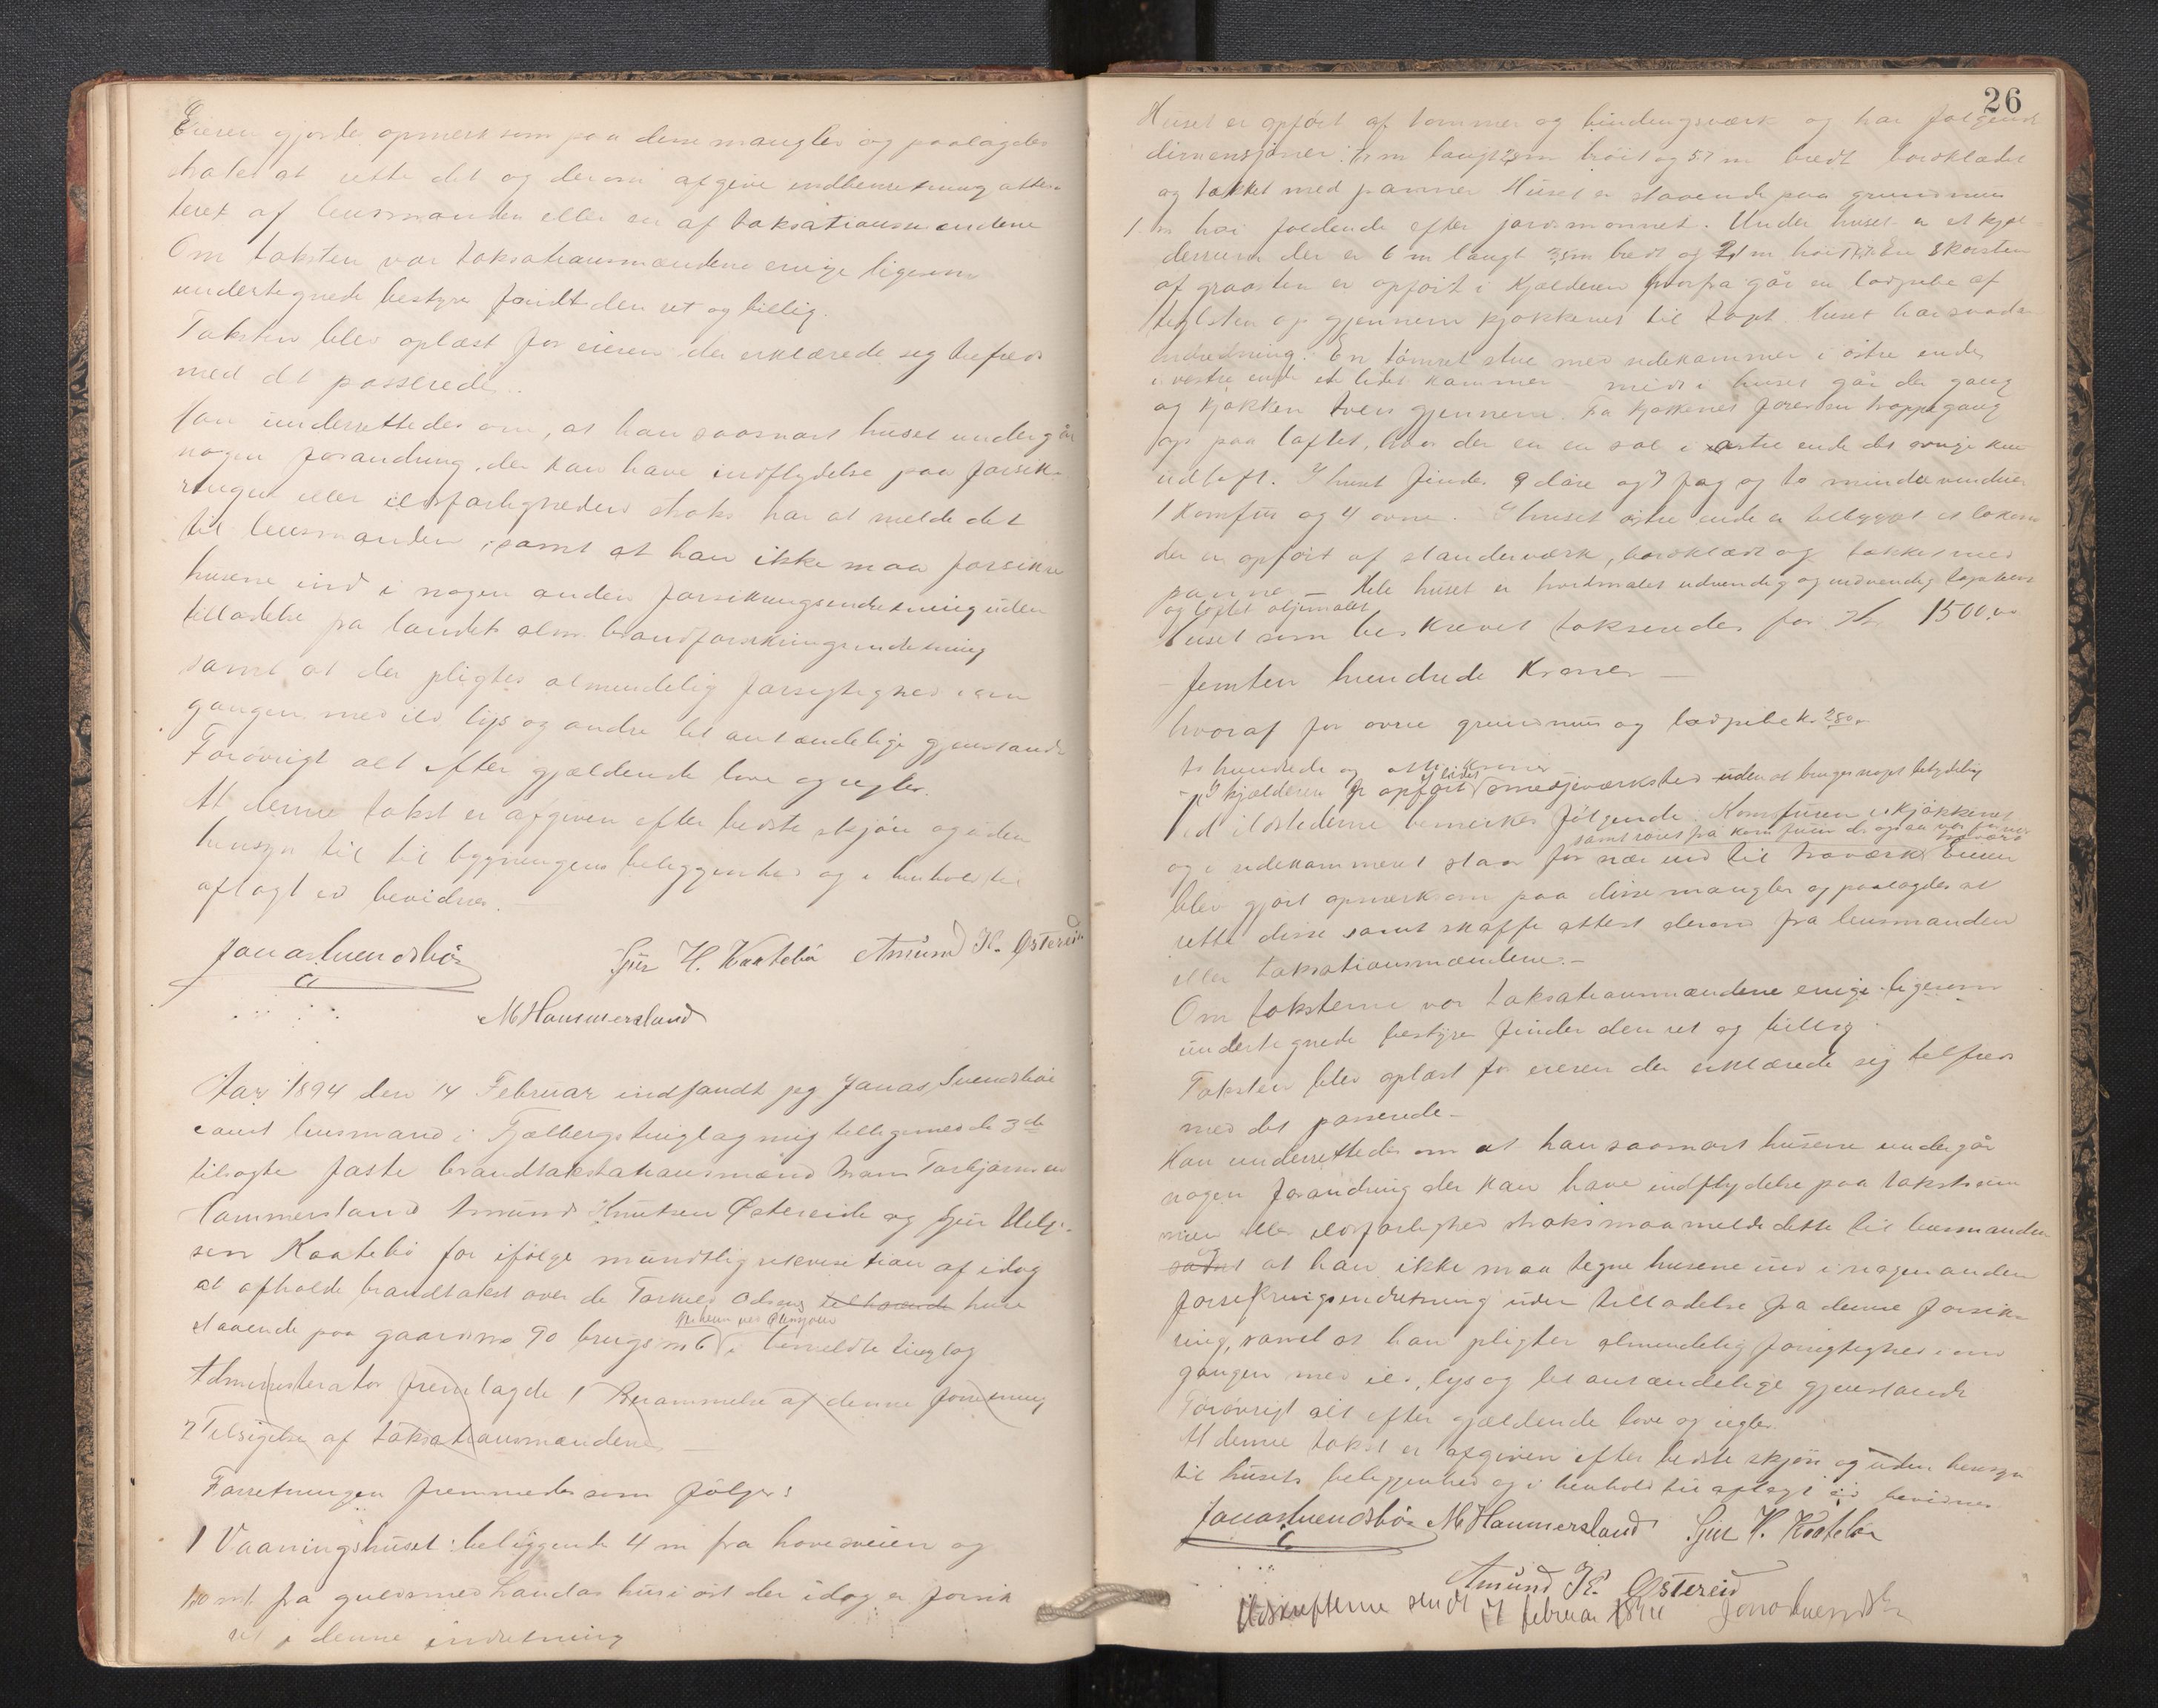 Eieren gjordes opmerksom paa denne mangler og paalagdes
straks at rette det og derom afgive indberetning attes-
teret af lensmanden eller en af taksationsmændene
Om taksten var taksationsmændene enige ligesom
undertegnede bestyrer fandt den ret og billig.
Taksten blev oplæst for eieren der erklærede seg tilfreds
med det passerede.
Han underrettedes om, at han saasnart huset undergår
nogen forandring, der kan have indflydelse paa forsik-
ringen eller ildsfarligheden straks har at melde det
til lensmanden, samt at han ikke maa forsikre
husene ind i nogen anden forsikringsindretning uden
tilladelse fra landets alm. brandforsikringsindretning
samt at der pligtes almindelig forsigtighed i om
gangen med ild lys og andre let antændelige gjenstande
Forøvrigt alt efter gjældende love og regler.
At denne takst er afgiven efter bedste skjøn og uden
hensyn til til bygningens beliggenhed og i henhold til
aflagt ed bevidnes.
Jonas Svendsbø Sjur H. Kaatebø Amund K. Østereid
M Hammersland
Aar 1894 den 14 Februar indfandt jeg Jonas Svendsbøe
const lensmand i Fjælbergs tinglag mig tilligemed de 3de
tilsagte faste brandtakstationsmænd Mons Torbjørnsen
Hammersland Amund Knutsen Østereide og Sjur Helge-
sen Kaatebø for ifølge mundtlig rekvisition af idag
at afholde brandtakst over de Torkeld Odsens tilhørende huse
staaende paa gaardsno 90 brugsno 6 i bemeldte tinglag
Administrator fremlagde 1 Berammelse af denne forretning
2 Tilsigelse af taksationsmændene
Forretningen fremmedes som følger:
1 Vaaningshuset: beliggende 4 m fra hovedveien og
m fra guldsmed Landas hus i øst der idag er forsik
ret i denne indretning
26
Huset er opført af tømmer og bindingsværk og har følgende
dimensjoner: m langt m høit og 5.7 m bredt bordklædt
og tækket med panner Huset er staaende paa grundmur
1 m høi faldende efter jordsmonnet. Under huset er et kjæl-
derrum der er 6 m langt 3,5 m bredt og 2,1 m høit. En Skorsten
af graasten er opført i kjælderen hvorfra går en lodpibe af
teglsten op gjennem kjøkkenet til tops. Huset har saadan
indretning. En tømret stue med sidekammer i østre ende
i vestre ende et lidet kammer midt i huset går der gang
og kjøkken tvers gjennem. Fra kjøkkenet fører en trappegang
op paa loftet, hvor der er en sal i østre ende det øvrige kun
udloft. I huset findes 9 døre og 7 fag og to mindre vinduer
1 Komfur og 4 ovne. I huset østre ende er tilbygget et lokum
der er opført af standerværk, bordklædt og tækket med
panne — Hele huset er hvidmalet udvendig og indvendig
og loftet oljemalet
Huset som beskrevet takseredes for Kr. 1500.00
— Femten hundrede Kroner —
hvoraf for ovne grundmur og lodpibe Kr. 280.
to hundrede og otti kroner
I kjælderen er opført et lidet smedjeværksted uden at bruges noget betydelig
Ved ildstederne bemerkes følgende: Komfuren i kjøkkenet
samt røret fra komfuren
og i sidekammeret staar for nær ind til træværk Eieren
blev gjort opmerksom paa disse mangler og paalagdes at
rette disse samt skaffe attest derom fra lensmanden
eller taksationsmændene.—
Om taksterne var taksationsmændene enige ligesom
undertegnede bestyrer finder den ret og billig.
Taksten blev oplæst for eieren der erklærede sig tilfreds
med det passerede.—
Han underrettedes om at han saasnart husene undergår
nogen forandring der kan have indflydelse paa takstsum
men eller ildsfarlighed straks maa melde dette til lensmanden
samt at han ikke maa tegne husene ind i nogen anden
forsikringsindretning uden tilladelse fra denne forsik-
ring, samt at han pligter almindelig forsigtighed i om
gangen med ild, lys og let antændelige gjenstande
Forøvrigt alt efter gjældende love og regler.
At denne takst er afgiven efter bedste skjøn og uden hensyn
til husets beliggenhed og i henhold til aflagt ed bevidnes
Jonas Svendsbø M Hammersland Sjur H. Kaatebø
Amund K. Østereid
Udskrifterne sendt 17 februar 1894 Jonas Svendsbø